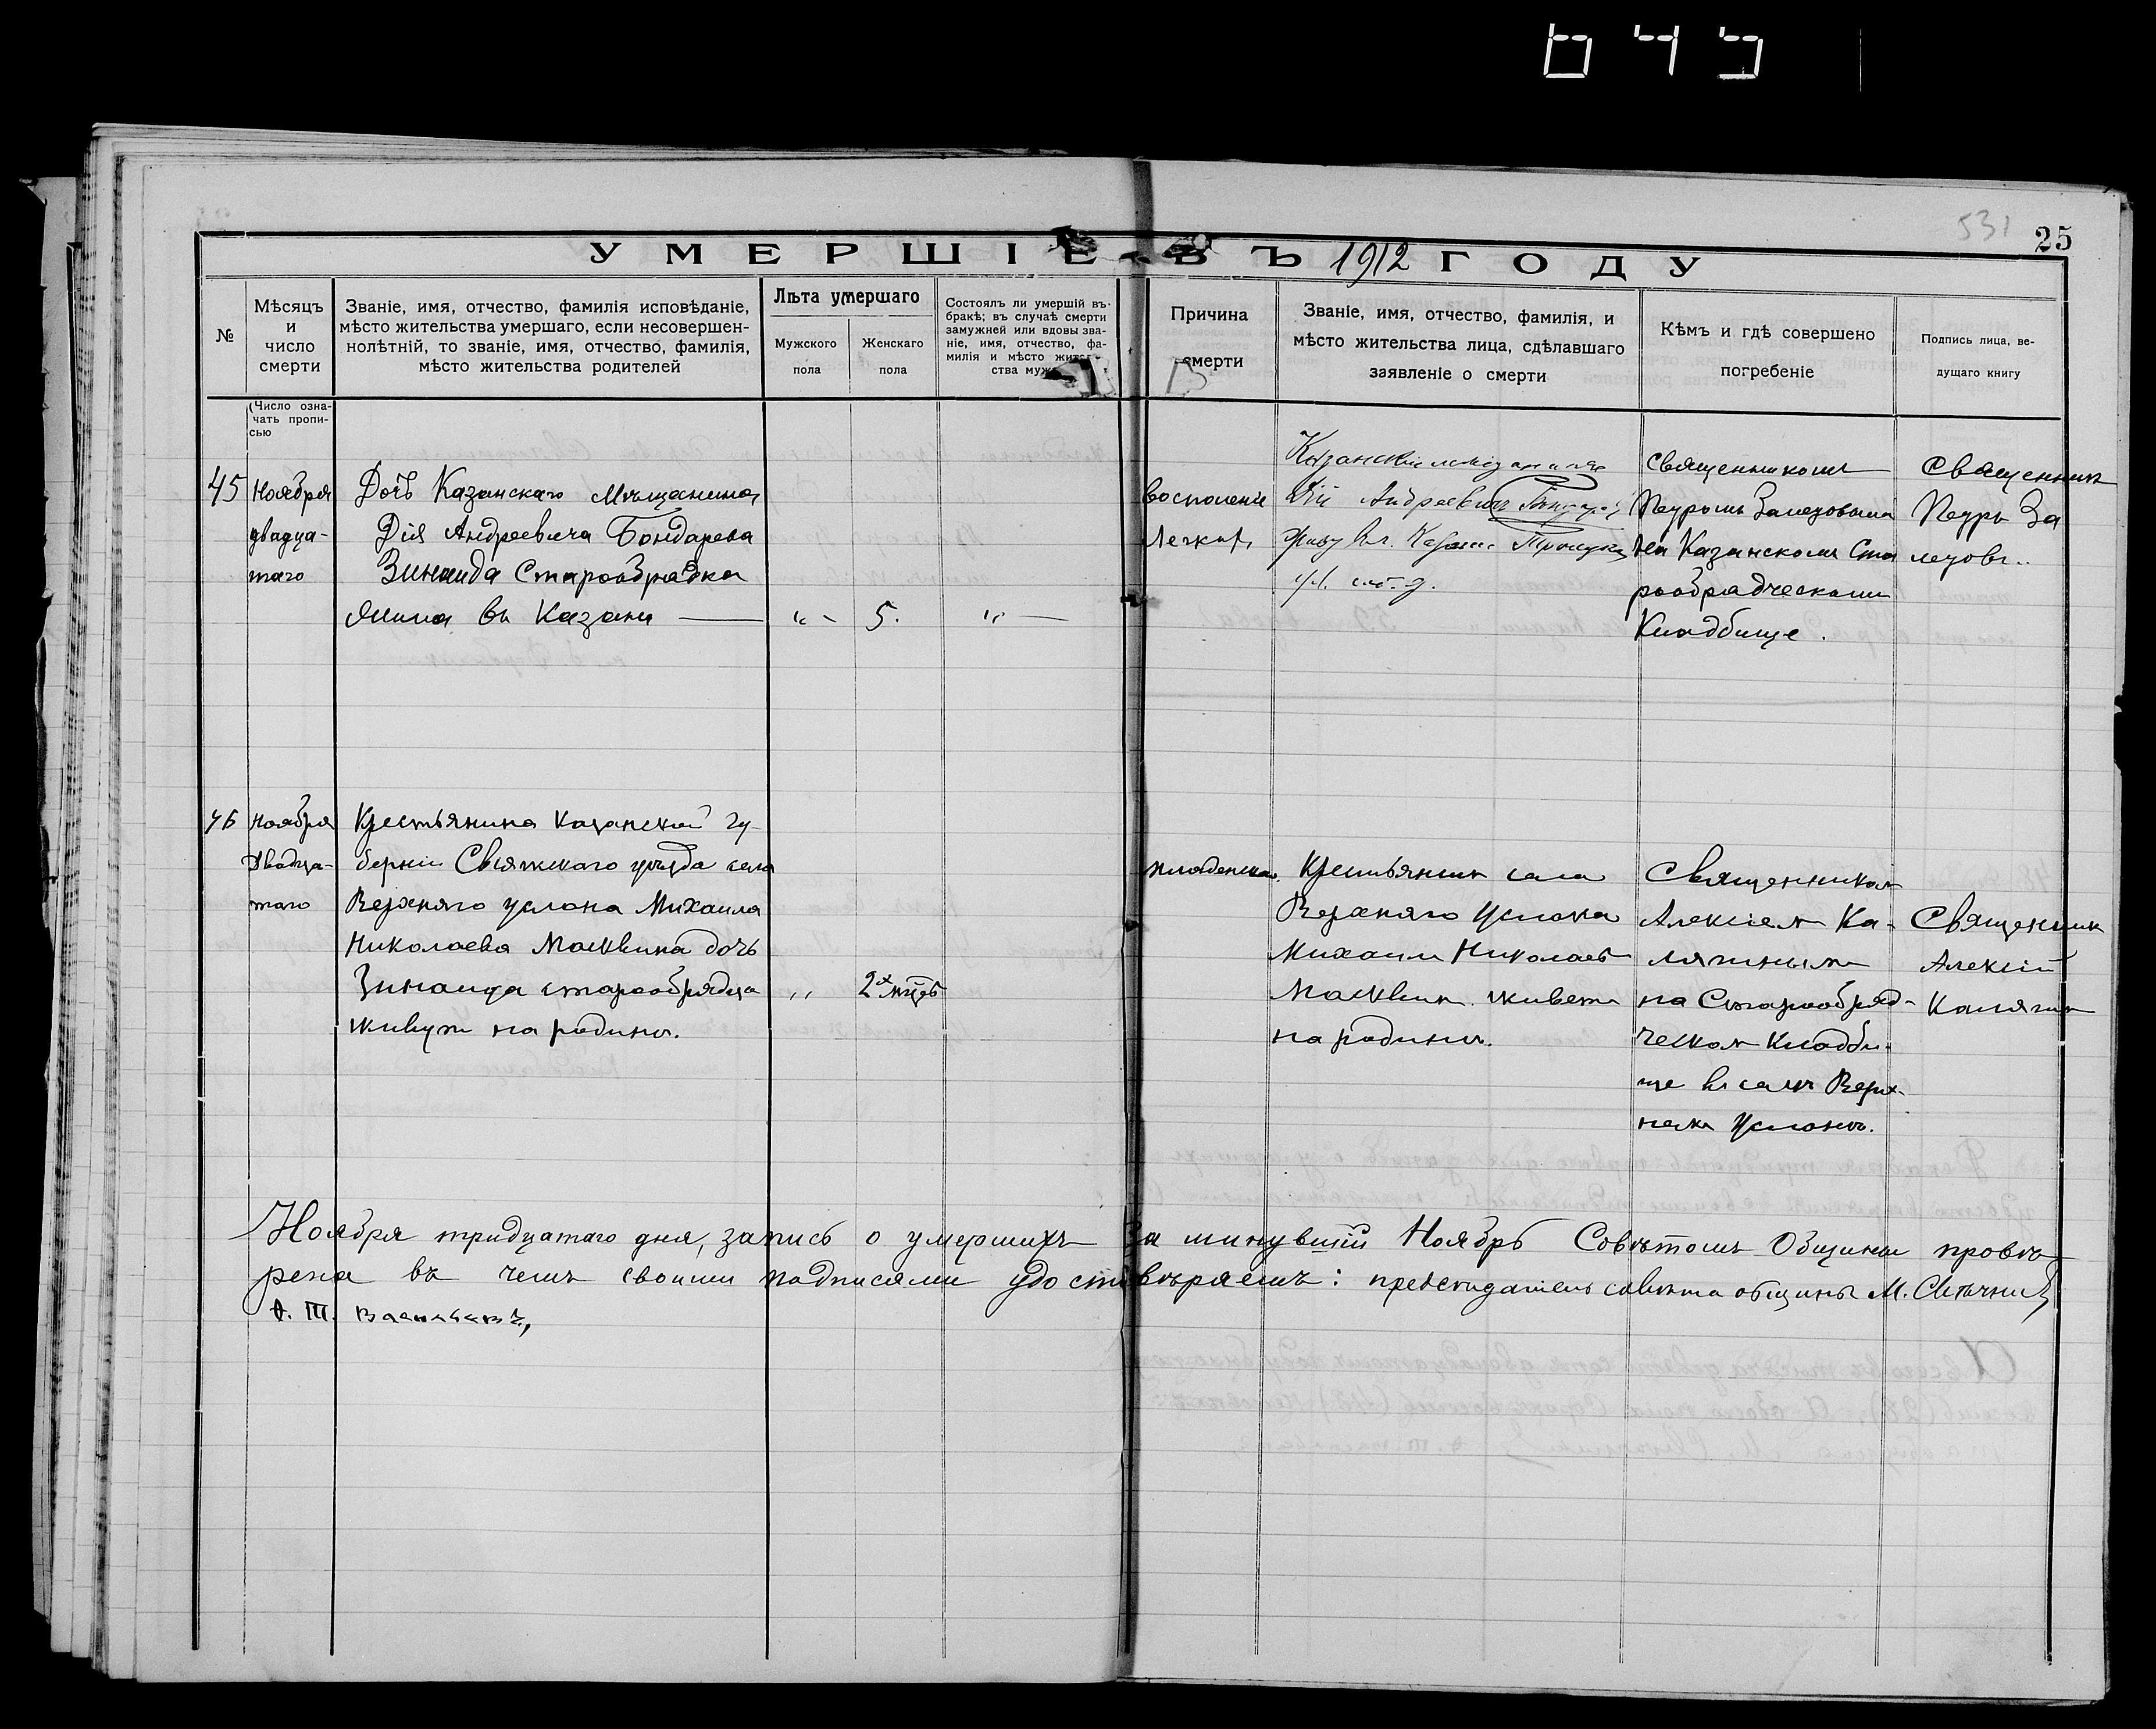 645
531
25
УМЕРШІЕ ВЪ 1912 ГОДУ
№
Мѣсяцъ
и
число
смерти
Званіе, имя, отчество, фамилія исповѣданіе,
мѣсто жительства умершаго, если несовершен-
нолѣтній, то званіе, имя, отчество, фамилія,
мѣсто жительства родителей
Лѣта умершаго
Мужского
пола
Женскаго
пола
Состоялъ ли умершій въ
бракѣ; въ случаѣ смерти
замужней или вдовы зва-
ніе, имя, отчество, фа-
милія и мѣсто житель-
ства мужа
Причина
смерти
Званіе, имя, отчество, фамилія, и
мѣсто жительства лица, сдѣлавшаго
заявленіе о смерти
Кѣмъ и гдѣ совершено
погребеніе
Подпись лица, ве-
дущаго книгу
(Число озна-
чать пропи-
сью
45
Ноября
двадца-
таго
Дочь Казанскаго Мѣщанина
Дія Андреевича Бондарева
Зинаида Старообрядка
жила въ Казани
„ -
5.
„
Восполеніе
Легкихъ
Казанскій мѣщанинъ
Дій Андреевичъ
Живу въ г. Казане
Священникомъ
Петромъ Залетовымъ
На Казанскомъ Ста
рообрядческомъ
Кладбище.
Священникъ
Петръ За
летовъ..
46
Ноября
Двадца-
таго
Крестьянина Казанской гу-
берніи Свіяжскаго уѣзда села
Верхняго Услона Михаила
Николаева Масквина дочь
Зинаида старообрядца
живут на родинѣ.
„
2х мцѣв
младенская.
Крестьянин села
Верхняго Услона
Михаил Николаев
Масквин. живет
на родинѣ.
Священником
Алексіем Ка-
лягиным
на Старообряд-
ческом Кладби-
ще въ селѣ Верх-
нем Услонѣ.
Священник
Алексій
Калягин
Ноября тридцатаго дня, запись о умершихъ за минувшій Ноябрь Совѣтомъ Общины провѣ
рена въ чемъ своими подписями удостовѣряемъ: председатель совѣта общины М.
Ѳ. Т. Васильевъ,